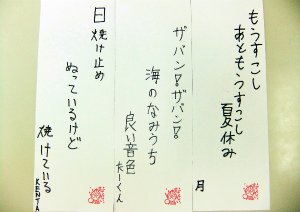 もうすこし
あともうすっこし
夏休み
月
ザバン!ザバン!
海のなみうち
良い音色
たーくん
日焼け止め
ぬっているけど
焼けている
KENTA